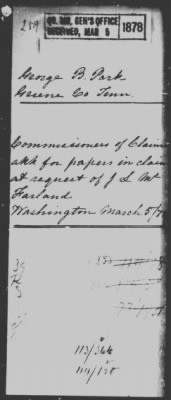 259
QR. MR. GEN'S OFFICE
RECEIVED, MAR 5
1878
George B. Park
Greene Co Tenn.
Commissioners of Claims
ask for papers in claim
at request of J L Mc
Farland
Washington March 5/7
113/366